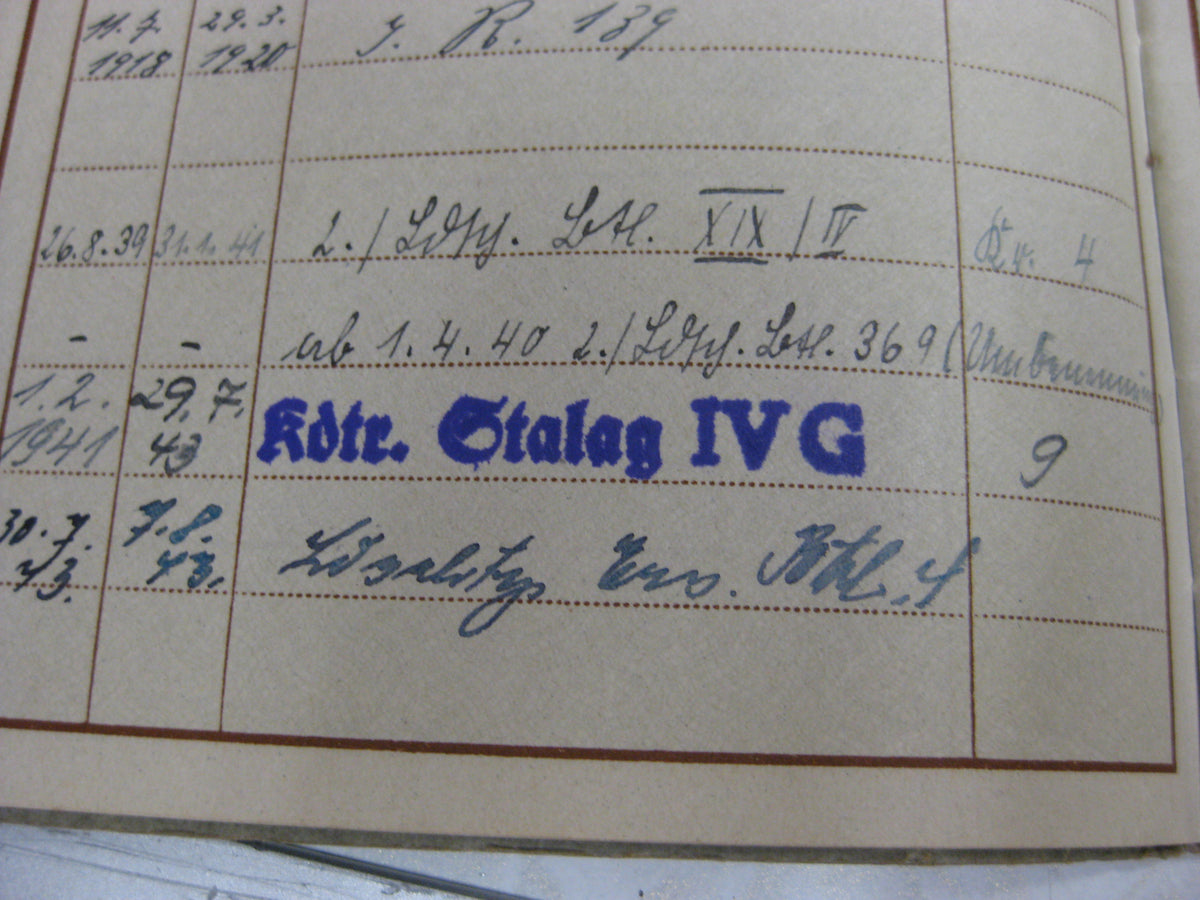 11. 7. 29. 3. J. R. 139
1918 1920
26.8.39 31.1.41 2./Ldsch. Btl. XIX/IV Kr. 4
- - ab 1.4.40 2./Ldsch. Btl. 369 (Umbenennung)
1.2. 29.7.
1941 43 Kdtr. Stalag IV G 9
30.7. 7.8.
43. 43. Ers. Btl. 4